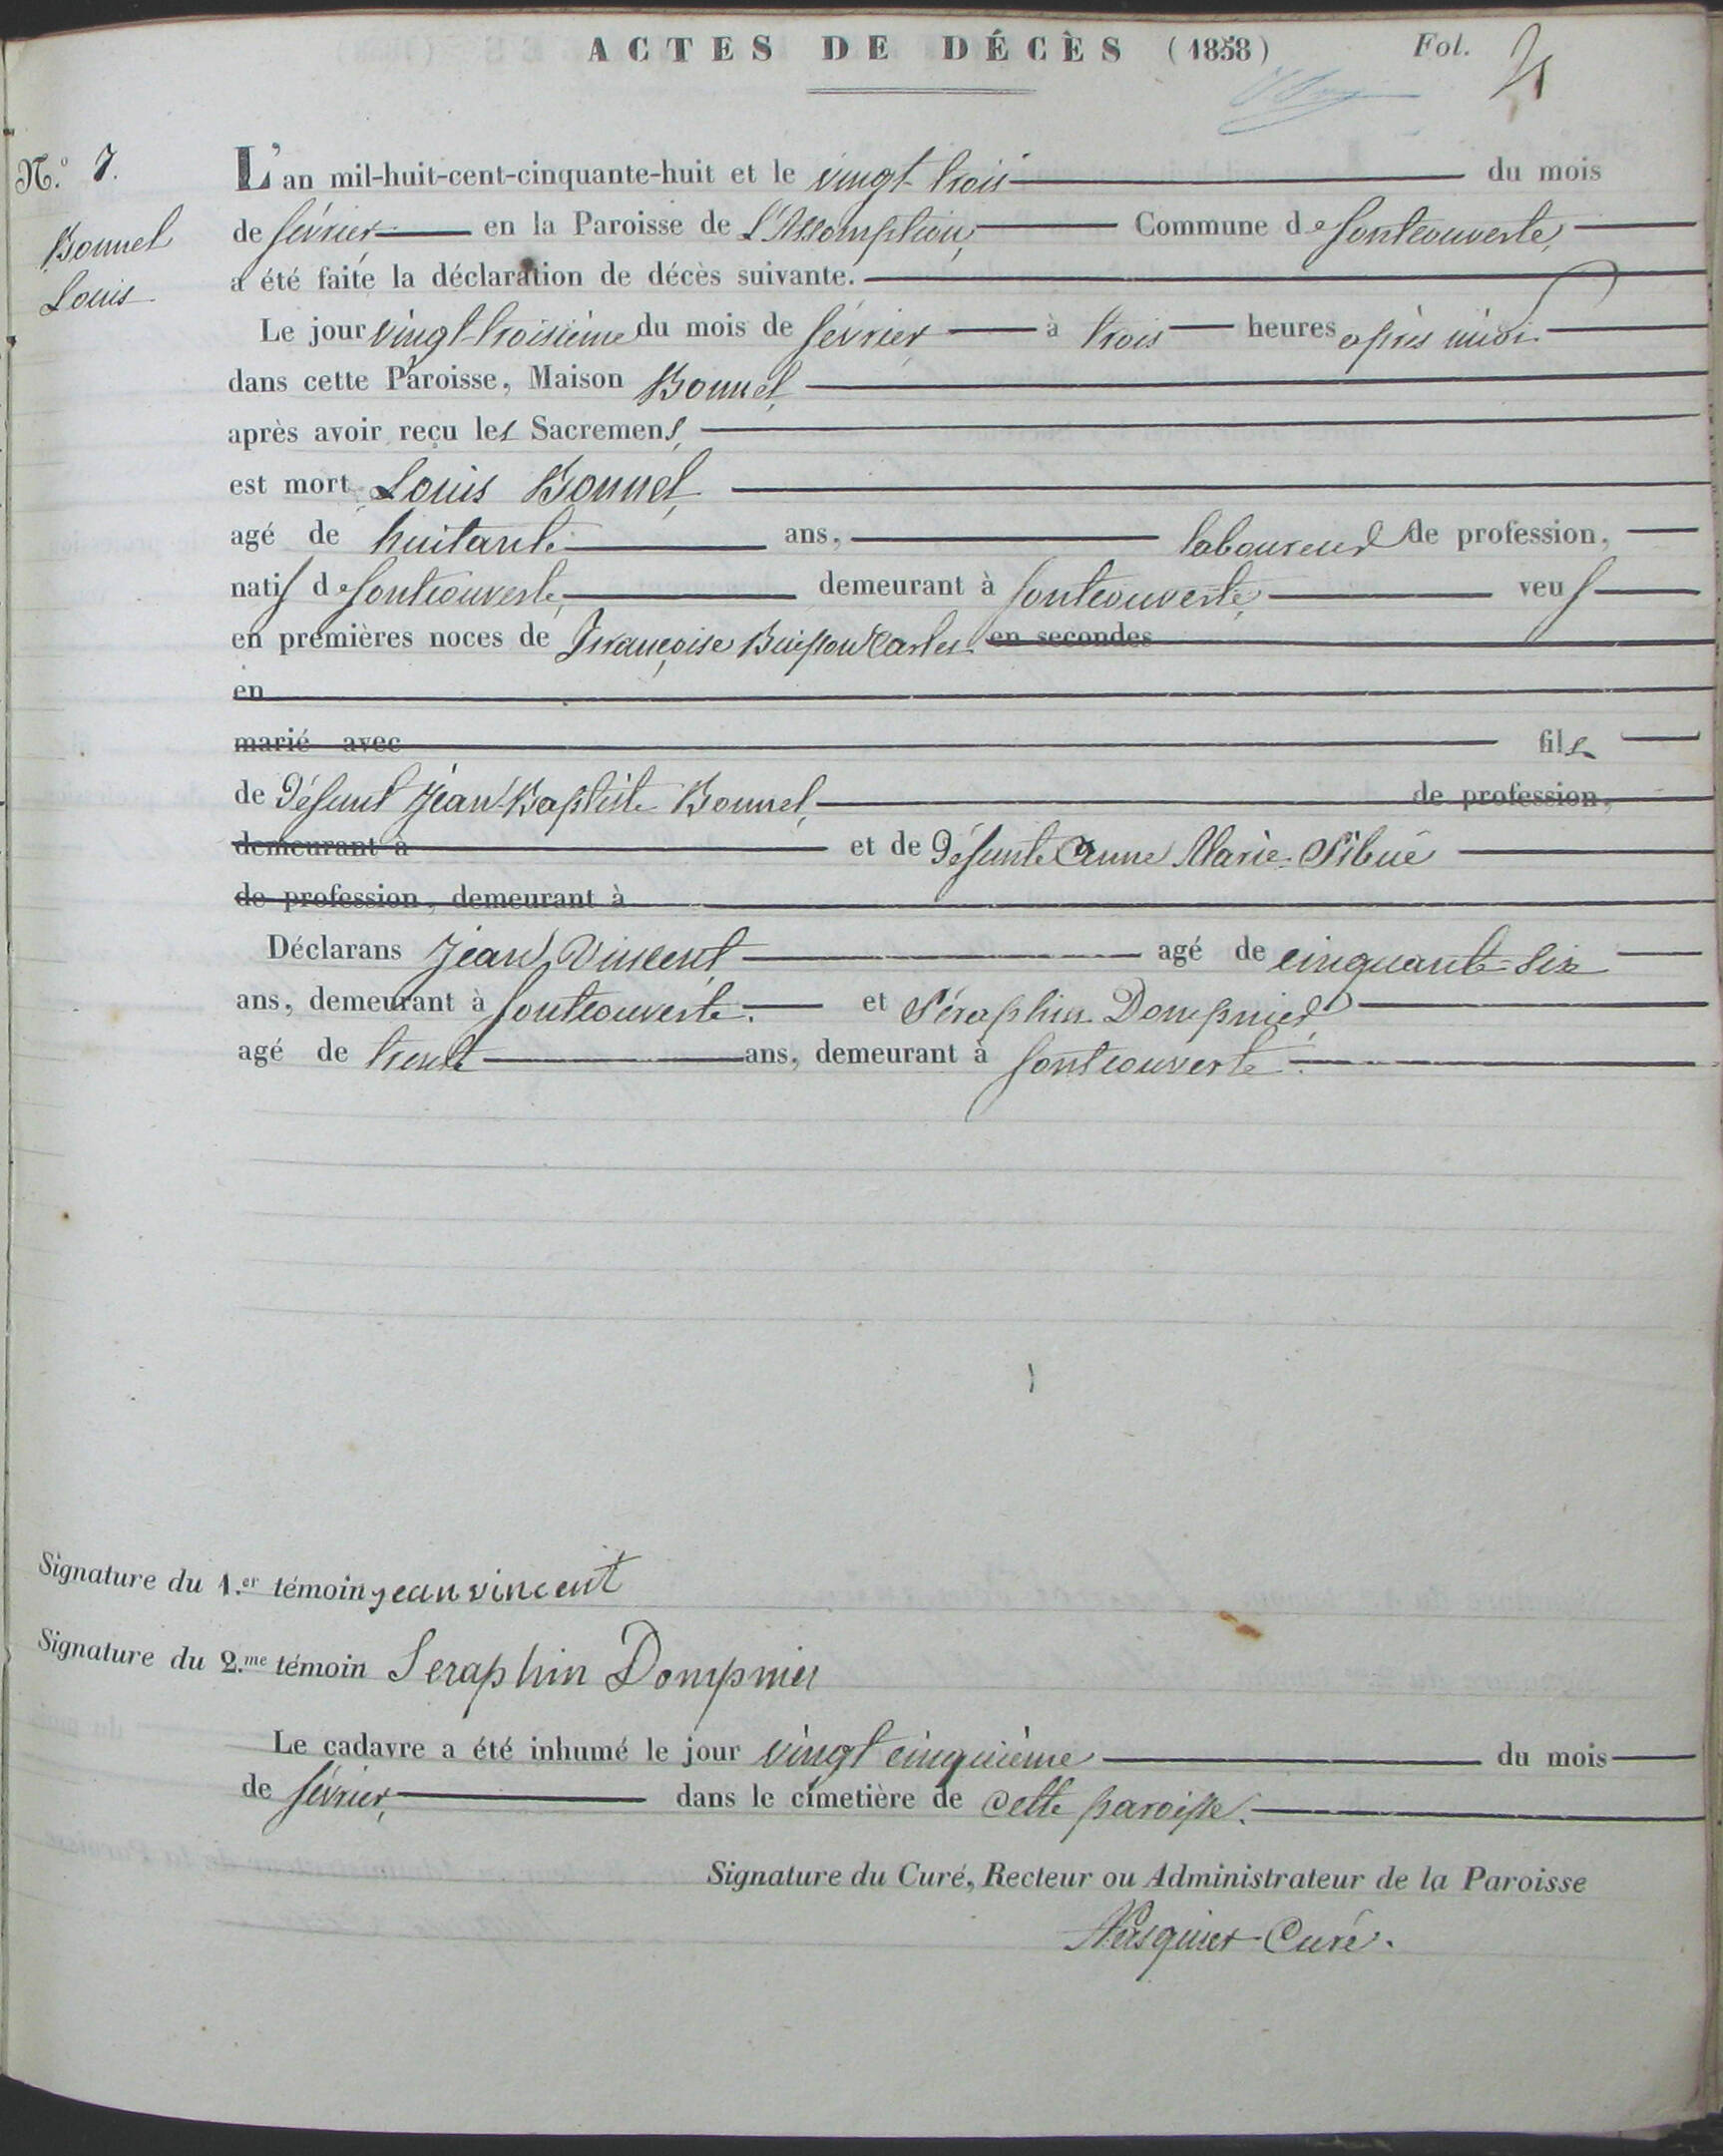 ACTES DE DÉCÈS (1858) Fol. 4
N.º 7.
Bonnel
Louis
L'an mil-huit-cent-cinquante-huit et le vingt trois du mois
de février en la Paroisse de L'Assomption, Commune de fontcouverte,
a été faite la déclaration de décès suivante.
Le jour vingt-troisième du mois de février à trois heures après midi
dans cette Paroisse, Maison Bonnel,
après avoir reçu les Sacremens,
est mort Louis Bonnel,
agé de huitante ans, laboureur de profession,
natif de fontcouverte, demeurant à fontcouverte, veuf
en premières noces de Françoise Buisson Carles en secondes
en
marié avec fils
de Défunt Jean-Baptiste Bonnel, de profession,
demeurant à et de Défunte Anne Marie Sibué
de profession, demeurant à
Déclarans Jean Vincent agé de cinquante-six
ans, demeurant à fontcouverte. et Séraphin Dompnier,
agé de trente ans, demeurant à fontcouverte.
Signature du 1.er témoin jean vincent
Signature du 2.me témoin Seraphin Dompnier
Le cadavre a été inhumé le jour vingt cinquième du mois
de février, dans le cimetière de cette paroisse.
Signature du Curé, Recteur ou Administrateur de la Paroisse
Curé.